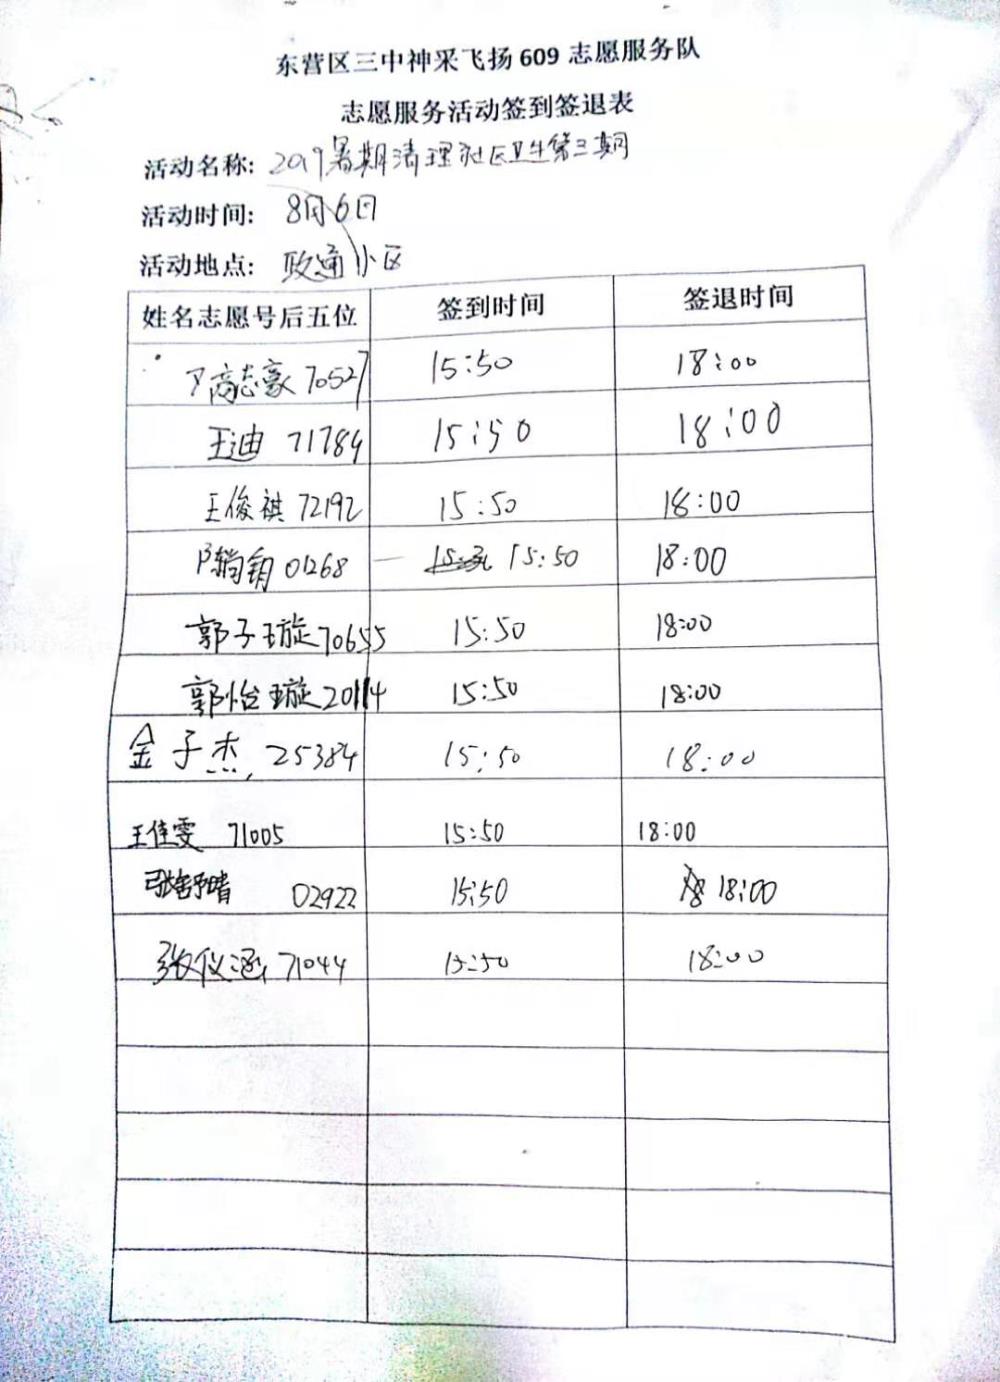 东营区三中神采飞扬609志愿服务队
志愿服务活动签到签退表
活动名称: 2019暑期清理社区卫生第三期
活动时间: 8月6日
活动地点: 政通小区
姓名志愿号后五位 签到时间 签退时间
商志豪 70527 15:50 18:00
王迪 71784 15:50 18:00
王俊祺 72192 15:50 18:00
01268 15:50 18:00
郭子璇 70655 15:50 18:00
郭怡璇 20114 15:50 18:00
金子杰 25384 15:50 18:00
王佳雯 71005 15:50 18:00
张舒晴 02922 15:50 18:00
张仪涵 71044 15:50 18:00